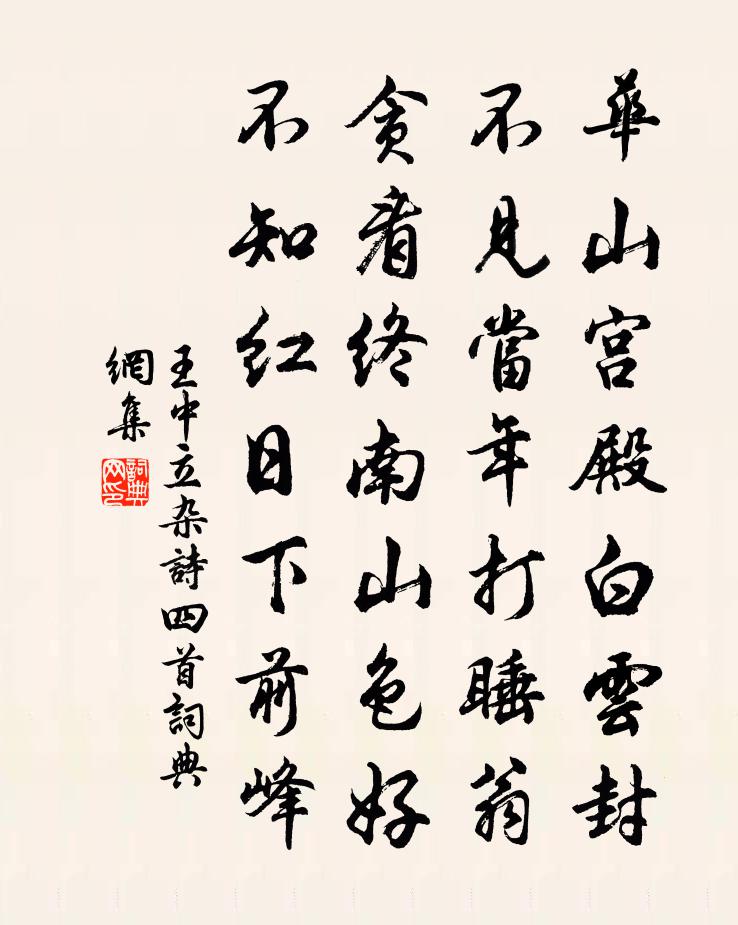 華山宫殿白雲封
不見當年打睡翁
貪看終南山色好
不知红日下前峰
王中立杂詩四首詞典
網集
詞典
网印